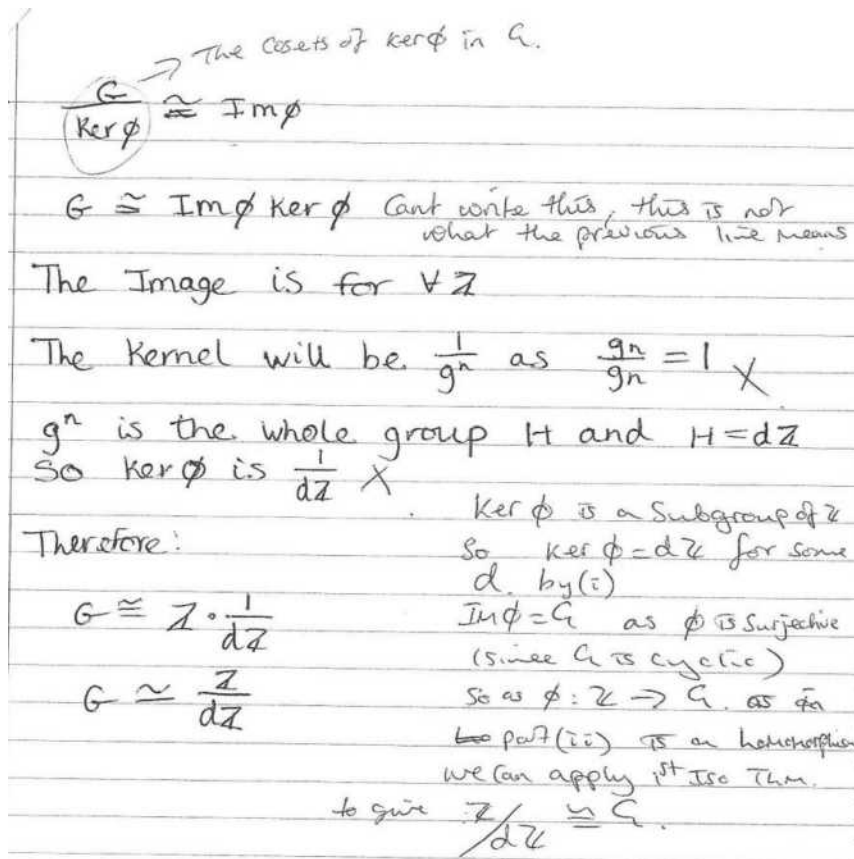 The cosets of ker φ in G.
G/Ker φ ≅ Im φ
G ≅ Im φ Ker φ Cant write this, this is not
what the previous line means
The Image is for ∀ Z
The Kernel will be 1/g^n as gn/gn = 1 X
g^n is the whole group H and H = dZ
So Ker φ is 1/dZ X
Therefore:
G ≅ Z · 1/dZ
G ≃ Z/dZ
Ker φ is a Subgroup of Z
So ker φ = dZ for some
d. by (i)
Im φ = G as φ is surjective
(since G is cyclic)
So as φ : Z → G. as in
part (ii) is an homomorphism
we can apply 1st Iso Thm.
to give Z/dZ ≃ G.